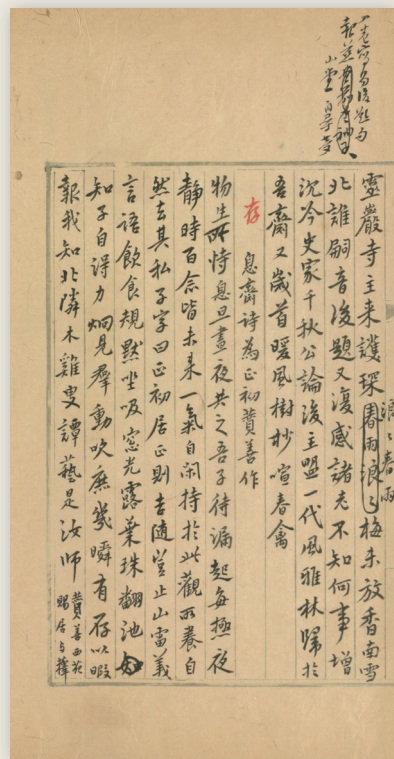 山堂
靈巖寺主来護琛周雨浪浪梅未放香南雪
浪浪春雨
北誰嗣音後題又復感諸老不知何事增
沉吟史家千秋公論後主盟一代風雅林歸於
吾齋又歲首暖風樹杪喧春禽
存
息齋詩為正初贊善作
物生所恃息旦晝夜共之吾子待漏起每極夜
靜時百念皆未来一氣自閑持於此觀所養自
然去其私子字曰正初居正則吉隨豈止山雷義
言語飲食規默坐吸窓光露葉珠翻池
知子自得力炯見羣動吹庶幾瞬有存以暇
報我知北隣木雞叟譚藝是汝師
贊善西苑
賜居与擇